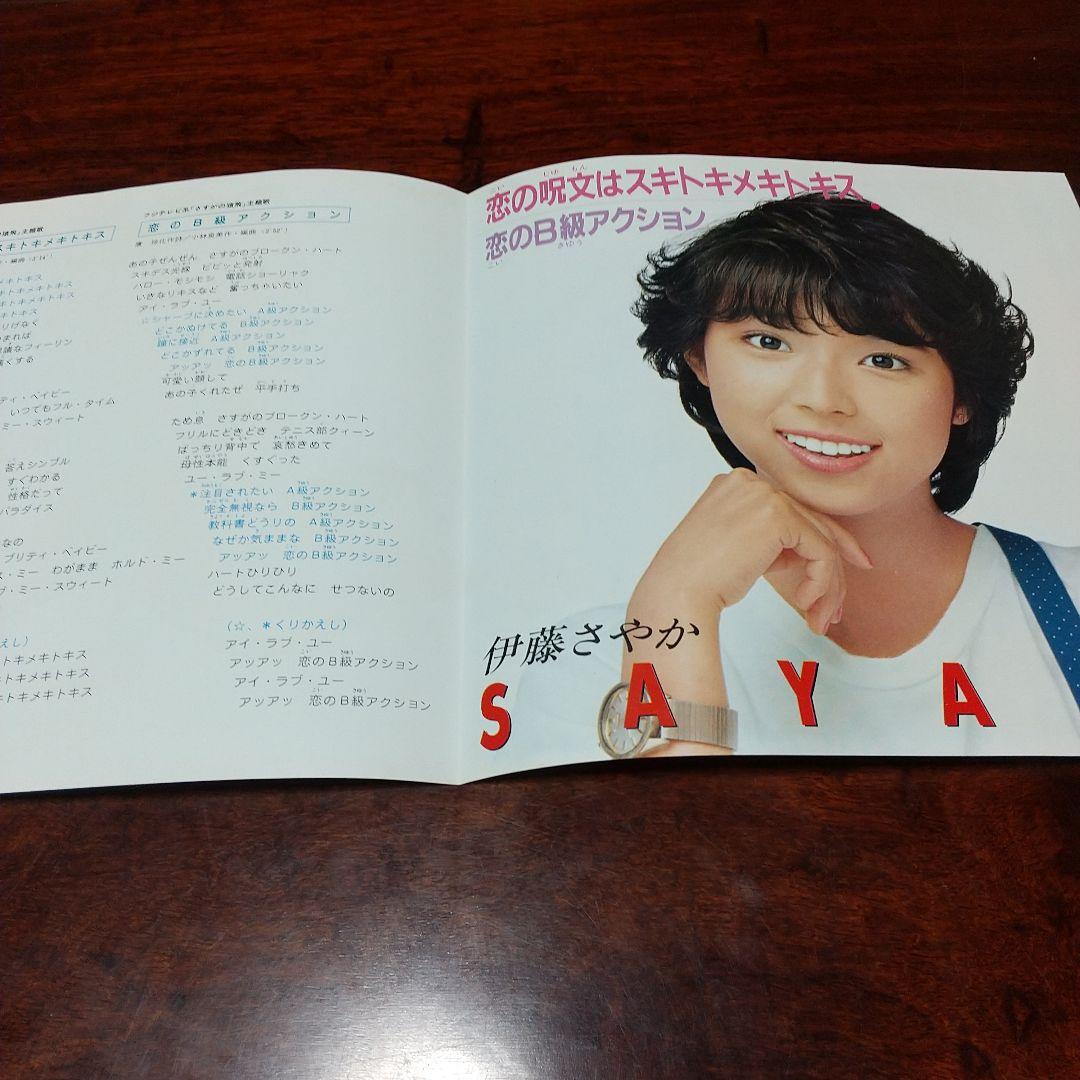 さすがの猿飛」主題歌
スキトキメキトキス
メキトキス
キトキメキトキス
キトキメキトキス
キトキス
りげなく
つまれば
議なフィーリン
痛くする
ティ・ベイビー
いつでもフル・タイム
ミー・スウィート
答えシンプル
すぐわかる
性格だって
パラダイス
なの
プリティ・ベイビー
ス・ミー わがまま ホルド・ミー
ブ・ミー・スウィート
えし)
トキメキトキス
キトキメキトキス
キトキメキトキス
フジテレビ系「さすがの猿飛」主題歌
恋のB級アクション
あの子ぜんぜん さすがのブロークン・ハート
スキデス光線 ビビッと発射
ハロー・モシモシ 電話ショーリャク
いきなりキスなど 奪っちゃいたい
アイ・ラブ・ユー
☆シャープに決めたい A級アクション
どこかぬけてる B級アクション
瞳に接近 A級アクション
どこかずれてる B級アクション
アッアッ 恋のB級アクション
可愛い顔して
あの子くれたぜ 平手打ち
ため息 さすがのブロークン・ハート
フリルにどきどき テニス部クィーン
ばっちり背中で 哀愁きめて
母性本能 くすぐった
ユー・ラブ・ミー
*注目されたい A級アクション
完全無視なら B級アクション
教科書どうりの A級アクション
なぜか気ままな B級アクション
アッアッ 恋のB級アクション
ハートひりひり
どうしてこんなに せつないの
(☆、*くりかえし)
アイ・ラブ・ユー
アッアッ 恋のB級アクション
アイ・ラブ・ユー
アッアッ 恋のB級アクション
恋の呪文はスキトキメキトキス
恋のB級アクション
伊藤さやか
SAYA